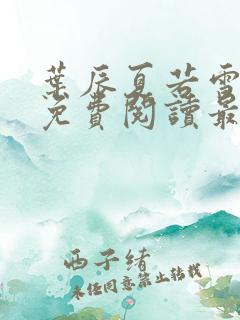 葉辰夏若雪
免費閱讀最
西子緒
未經同意禁止轉載